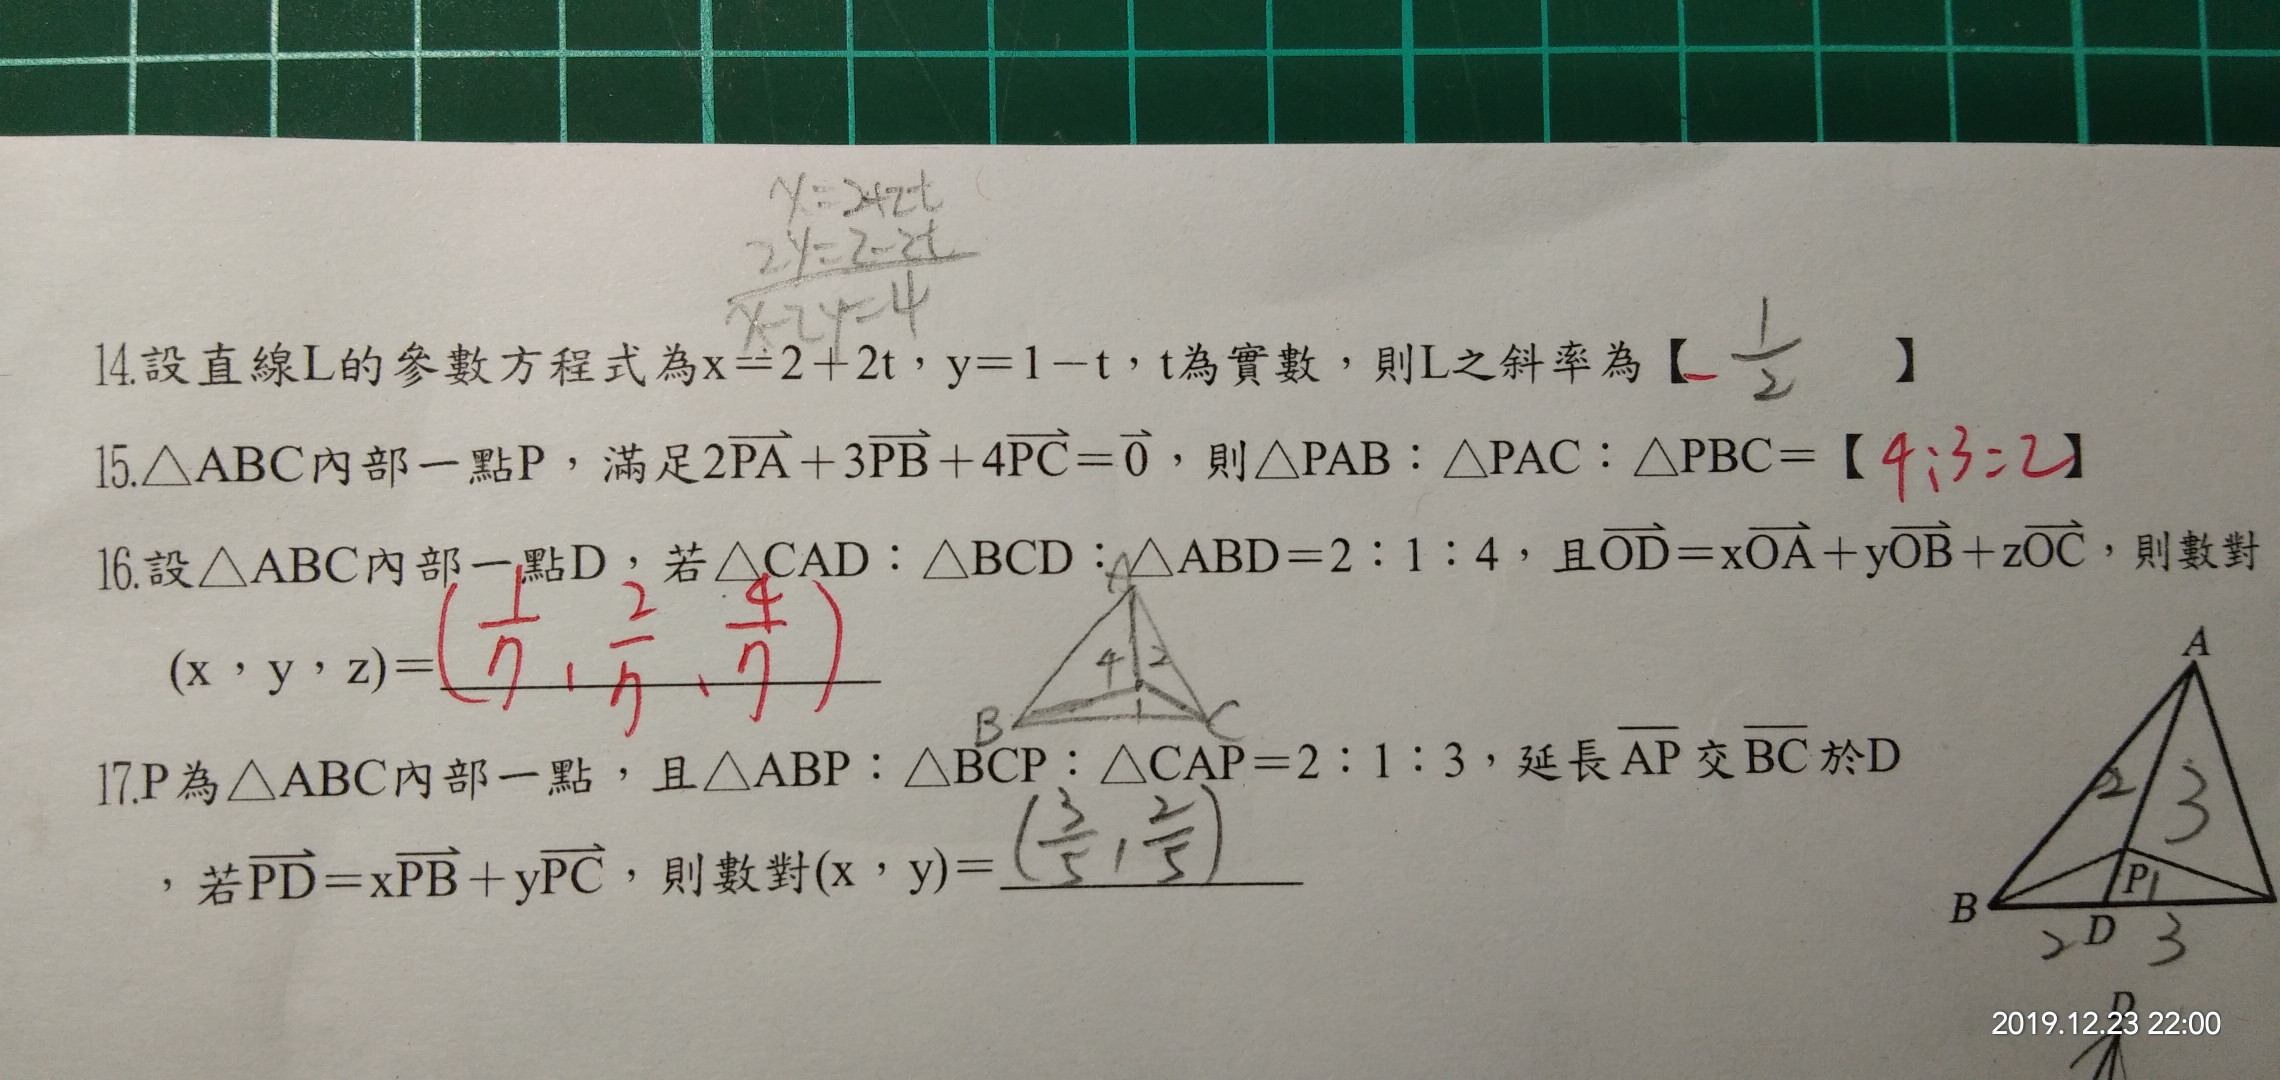 x=2+2t
2y=2-2t
x-2y=4
14.設直線L的參數方程式為x=2+2t，y=1-t，t為實數，則L之斜率為【-1/2】
15.△ABC內部一點P，滿足2PA+3PB+4PC=0，則△PAB：△PAC：△PBC=【4:3:2】
16.設△ABC內部一點D，若△CAD：△BCD：△ABD=2：1：4，且OD=xOA+yOB+zOC，則數對
(x，y，z)=(1/7,2/7,4/7)
A
4 2
1
B C
17.P為△ABC內部一點，且△ABP：△BCP：△CAP=2：1：3，延長AP交BC於D
，若PD=xPB+yPC，則數對(x，y)=(3/5,2/5)
A
2 3
P 1
B D
2 3
2019.12.23 22:00